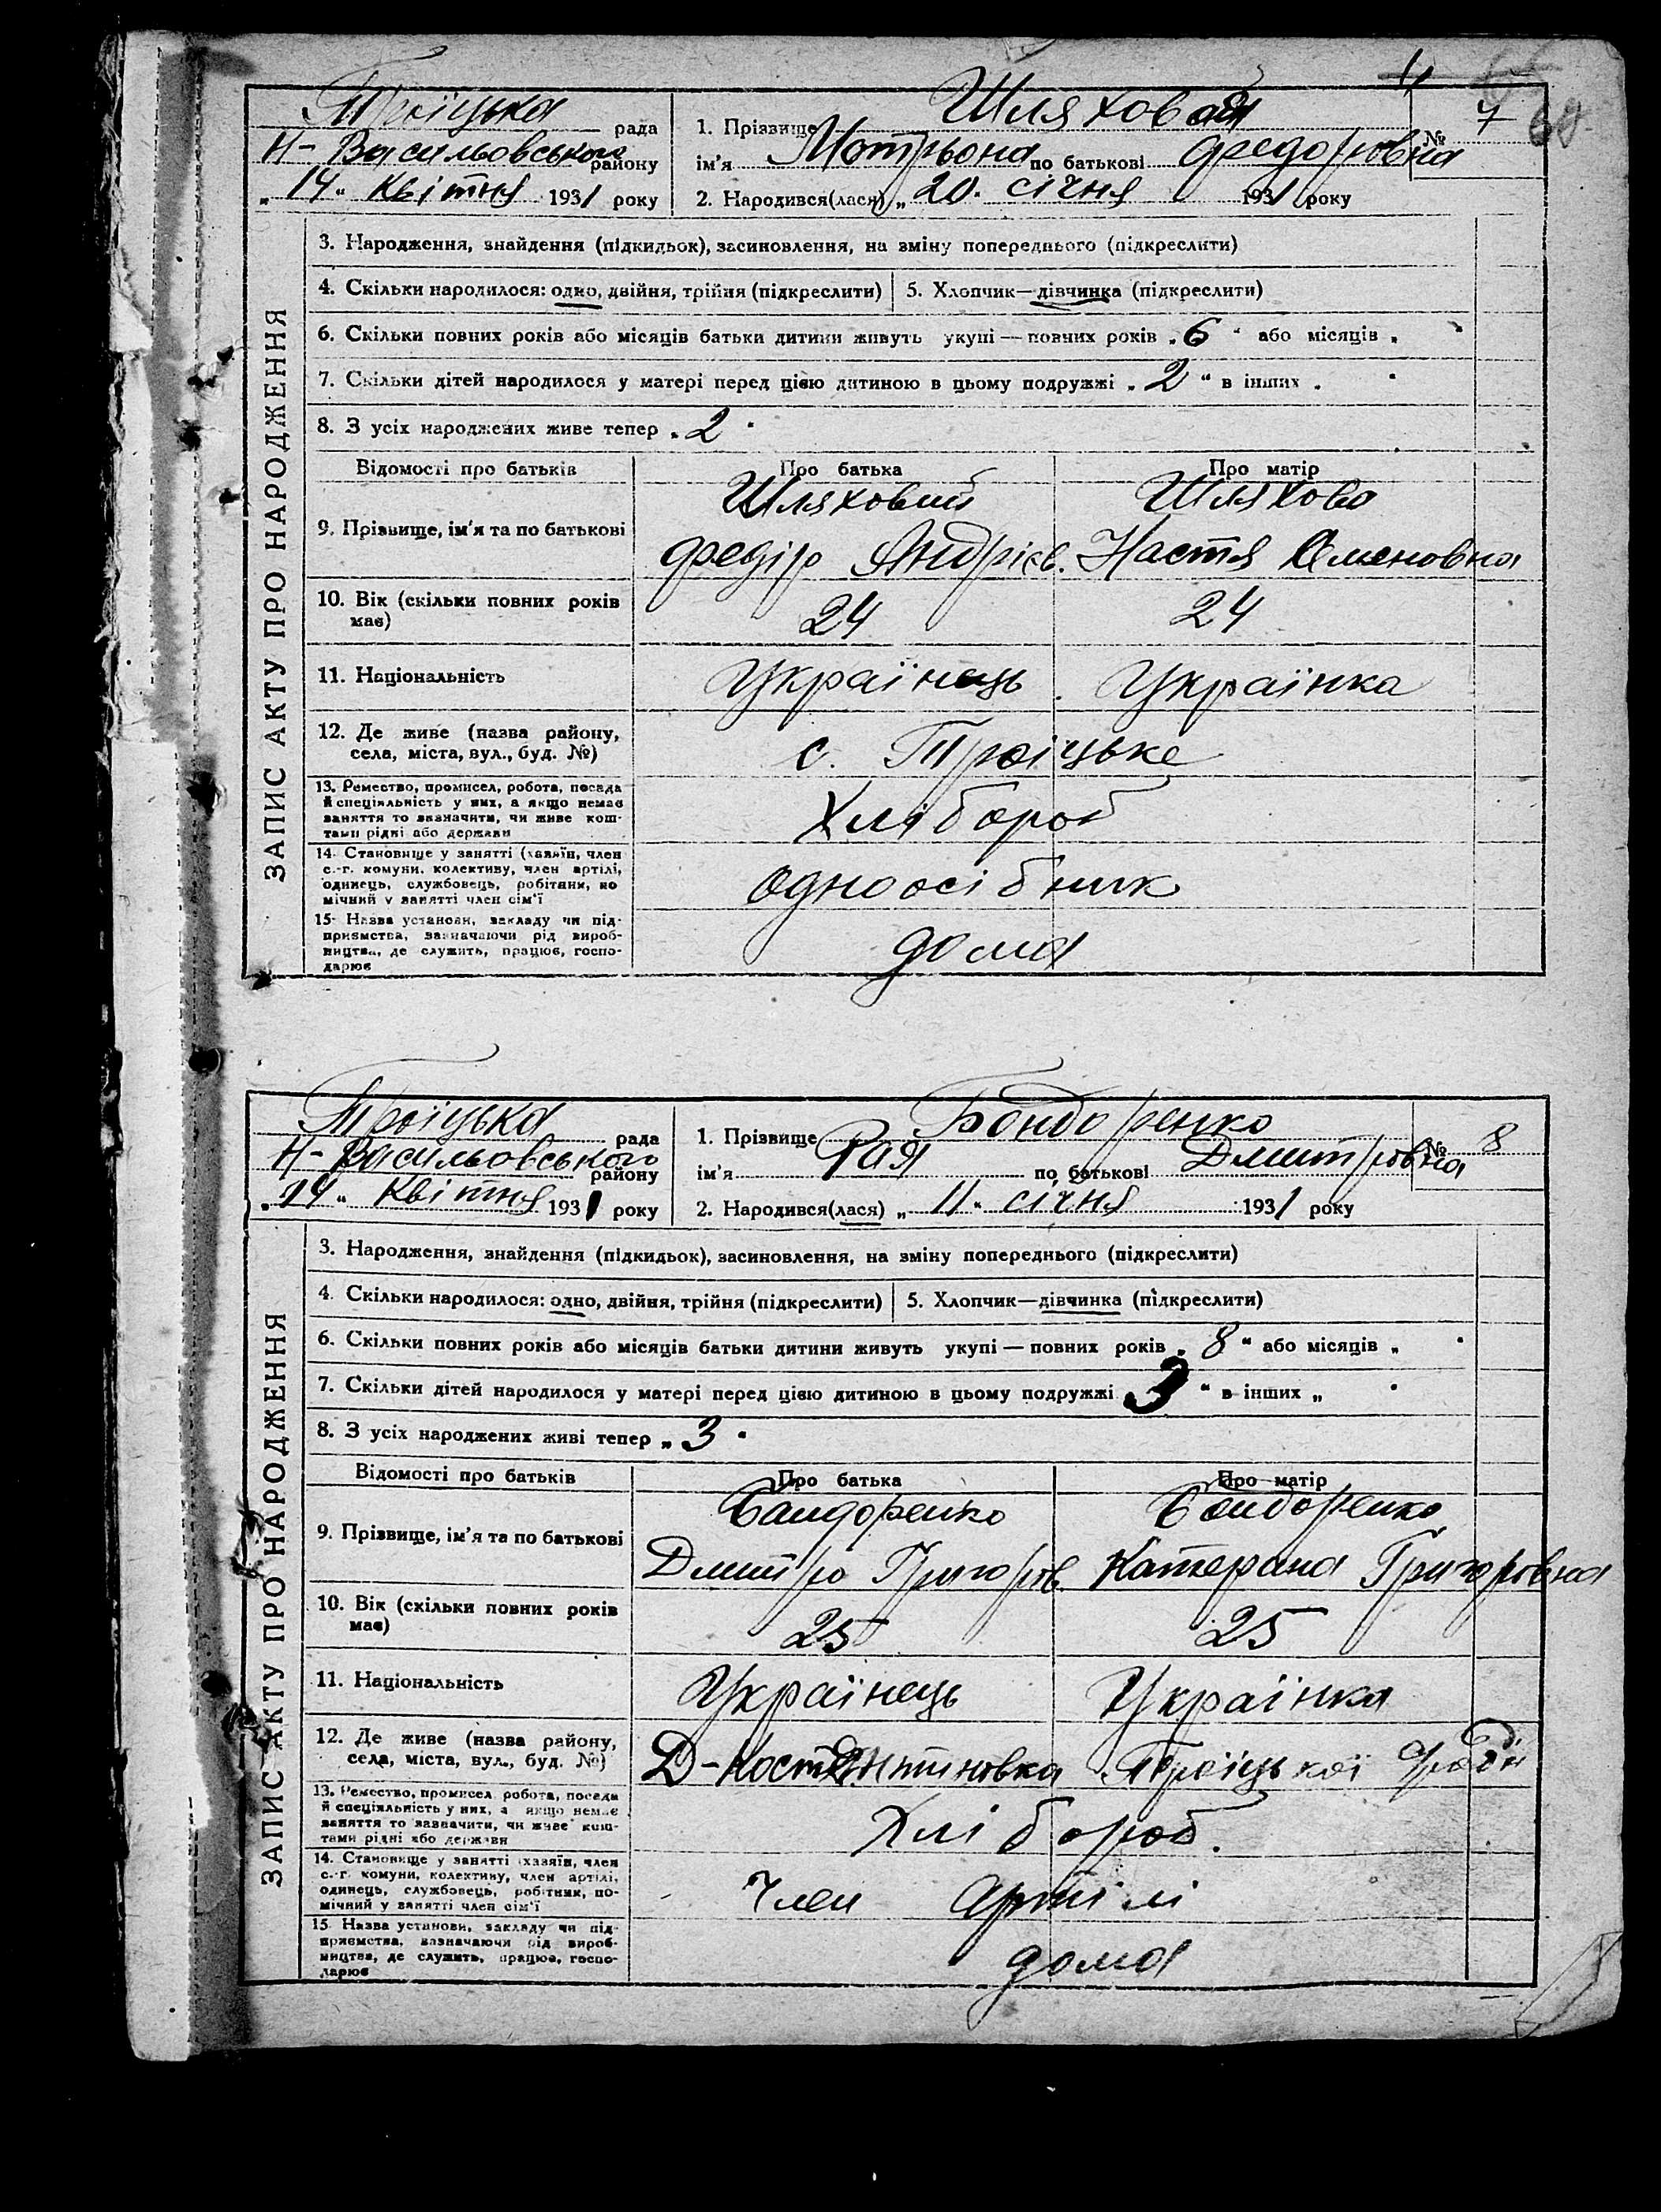 Троїцька рада
Н-Васильовського району
„14" Квітня 1931 року
1. Прізвище Шляховая
№ 7
68
ім'я Мотрьона по батькові Федоровна
2. Народився(лася) „20" січня 1931 року
ЗАПИС АКТУ ПРО НАРОДЖЕННЯ
3. Народження, знайдення (підкидьок), засиновлення, на зміну попереднього (підкреслити)
4. Скільки народилося: одно, двійня, трійня (підкреслити) 5. Хлопчик—дівчинка (підкреслити)
6. Скільки повних років або місяців батьки дитини живуть укупі — повних років „6" або місяців „ "
7. Скільки дітей народилося у матері перед цією дитиною в цьому подружжі „2" в інших „ "
8. З усіх народжених живе тепер „2"
Відомості про батьків Про батька Про матір
9. Прізвище, ім'я та по батькові
Шляховий Шляхова
Федір Андрієв. Настя Семеновна
10. Вік (скільки повних років має) 24 24
11. Національність Українець Українка
12. Де живе (назва району, села, міста, вул., буд. №) с. Троїцьке
13. Ремество, промисел, робота, посада й спеціяльність у них, а якщо немає заняття то зазначити, чи живе коштами рідні або держави Хлібороб
14. Становище у занятті (хазяїн, член с.-г. комуни, колективу, член артілі, одинець, службовець, робітник, помічний у занятті член сім'ї Одноосібник
15. Назва установи, закладу чи підприємства, зазначаючи рід виробництва, де служить, працює, господарює дома
Троїцька рада
Н-Васильовського району
„14" Квітня 1931 року
1. Прізвище Бондоренко
№ 8
ім'я Рая по батькові Дмитровна
2. Народився(лася) „11" січня 1931 року
ЗАПИС АКТУ ПРО НАРОДЖЕННЯ
3. Народження, знайдення (підкидьок), засиновлення, на зміну попереднього (підкреслити)
4. Скільки народилося: одно, двійня, трійня (підкреслити) 5. Хлопчик—дівчинка (підкреслити)
6. Скільки повних років або місяців батьки дитини живуть укупі — повних років „8" або місяців „ "
7. Скільки дітей народилося у матері перед цією дитиною в цьому подружжі 3 " в інших „ "
8. З усіх народжених живі тепер „3"
Відомості про батьків Про батька Про матір
9. Прізвище, ім'я та по батькові
Бандоренко Бондоренко
Дмитро Григоров Катерана Григоровна
10. Вік (скільки повних років має) 25 25
11. Національність Українець Українка
12. Де живе (назва району, села, міста, вул., буд. №) Д-Костянтиновка Троїцької
13. Ремество, промисел, робота, посада й спеціяльність у них, а якщо немає заняття то зазначити, чи живе коштами рідні або держави Хлібороб.
14. Становище у занятті (хазяїн, член с.-г. комуни, колективу, член артілі, одинець, службовець, робітник, помічний у занятті член сім'ї Член артілі
15. Назва установи, закладу чи підприємства, зазначаючи рід виробництва, де служить, працює, господарює дома